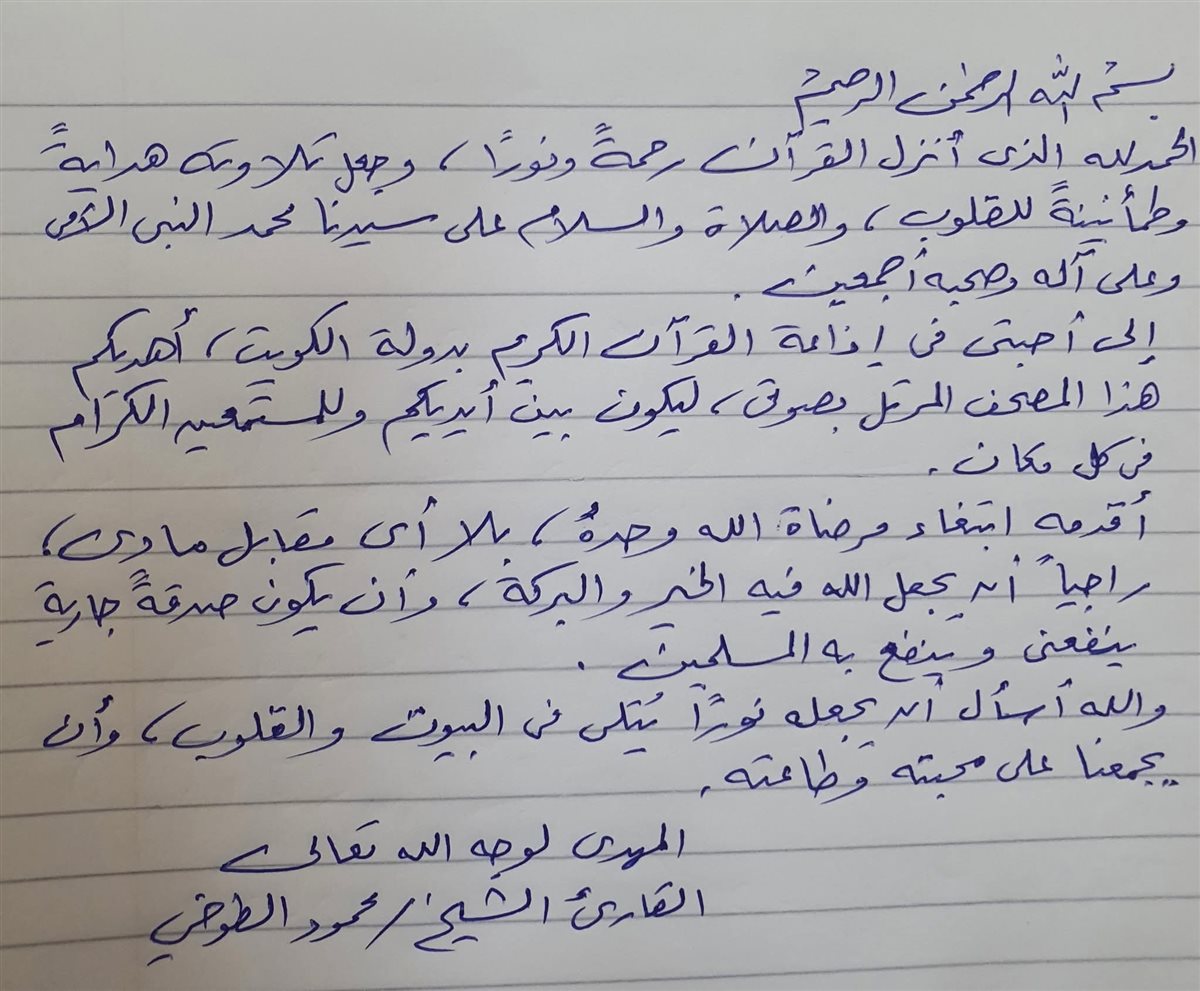 بسم الله الرحمن الرحيم
الحمد لله الذى أنزل القرآن رحمةً ونورًا، وجعل تلاوته هدايةً
وطمأنينةً للقلوب، والصلاة والسلام على سيدنا محمد النبى الأمى
وعلى آله وصحبه أجمعين.
إلى أحبتى فى إذاعة القرآن الكريم بدولة الكويت، أهديكم
هذا المصحف المرتل بصوتى، ليكون بين أيديكم وللمستمعين الكرام
فى كل مكان.
أقدمه ابتغاء مرضاة الله وحدهُ، بلا أى مقابل مادى،
راجياً أن يجعل الله فيه الخير والبركة، وأن يكون صدقةً جارية
ينفعنى وينفع به المسلمين.
والله أسأل أن يجعله نورًا يُتلى فى البيوت والقلوب، وأن
يجمعنا على محبته وطاعته.
المهدى لوجه الله تعالى
القارئ الشيخ/ محمود الطوخي